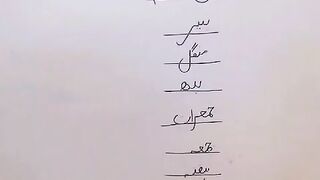 پیر
منگل
بدھ
جمعرات
جمعہ
ہفتہ